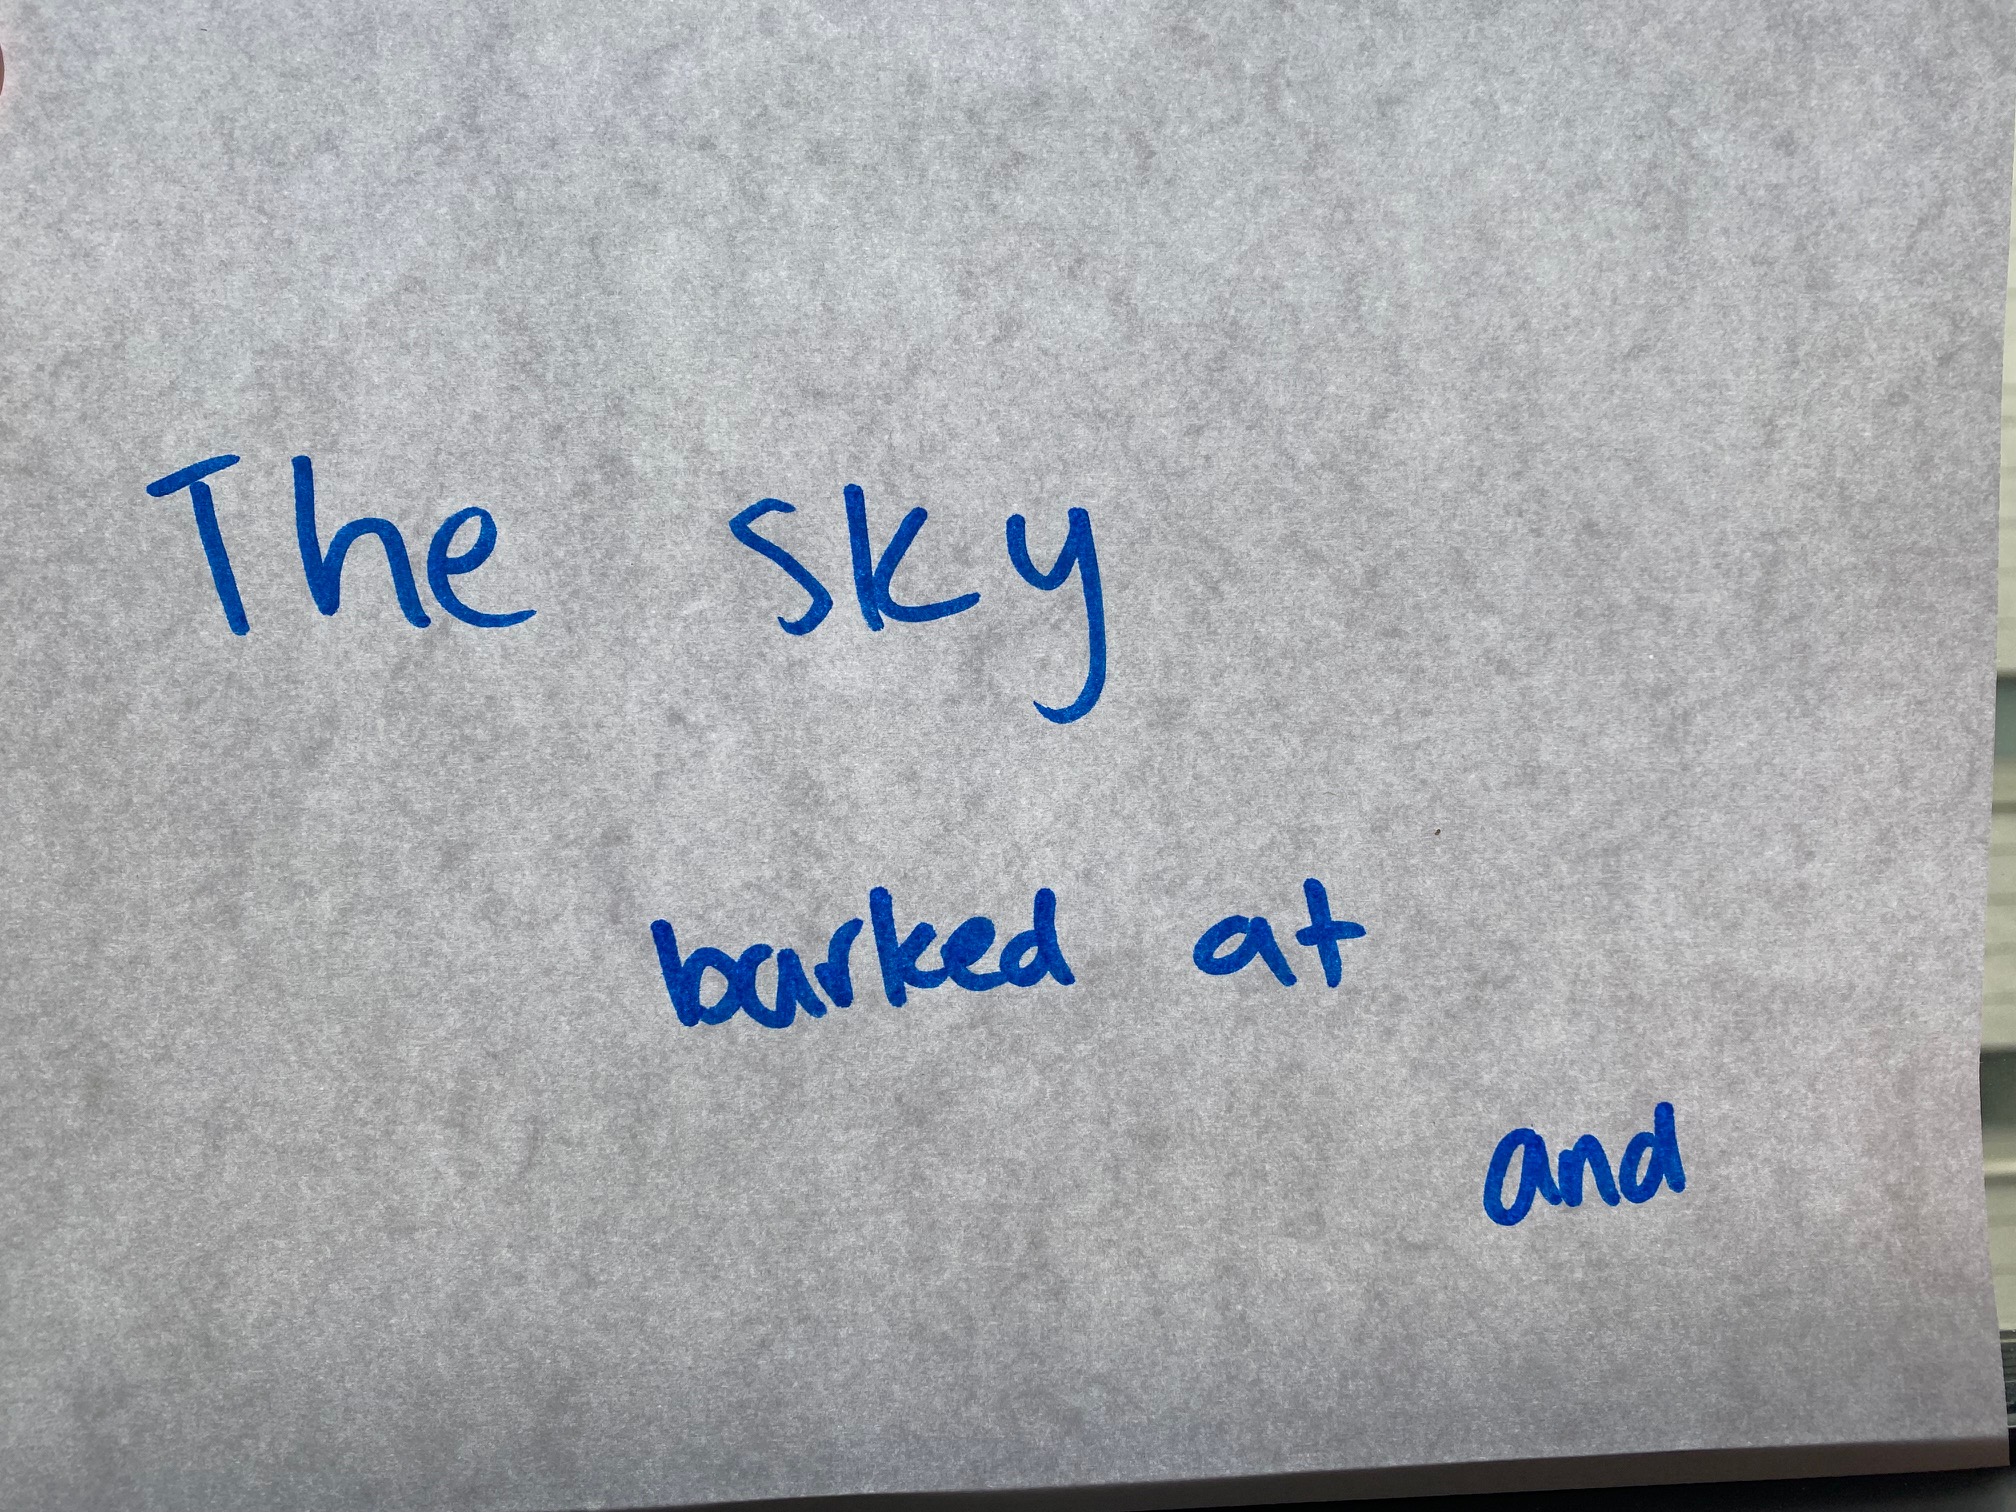 The sky
barked at
and